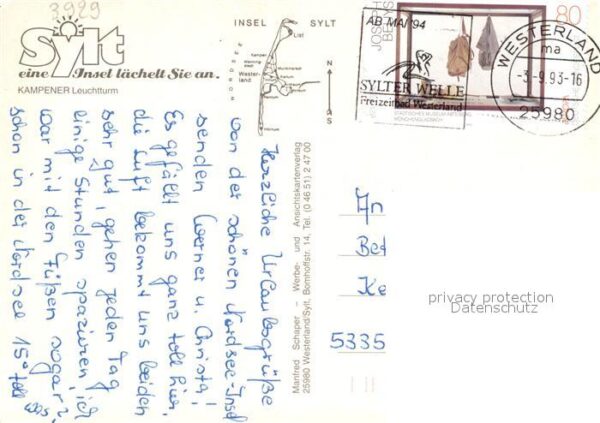 3929
Sylt
eine Insel lächelt Sie an.
KAMPENER Leuchtturm
INSEL SYLT
List
Kampen
Westerland
Hörnum
N
S
AB MAI '94
SYLTER WELLE
Freizeitbad Westerland
JOSEPH BEUYS
80
STÄDTISCHES MUSEUM ABTEIBERG
MÖNCHENGLADBACH
WESTERLAND
ma
-3.-9.93-16
25980
Herzliche Urlaubsgrüße
von der schönen Nordsee-Insel
senden Werner u. Christa!
Es gefällt uns ganz toll hier,
die Luft bekommt uns beiden
sehr gut, gehen jeden Tag
einige Stunden spazieren, ich
war mit den Füßen sogar
schon in der Nordsee 15° toll
Manfred Schaper - Werbe- und Ansichtskartenverlag
25980 Westerland/Sylt, Bomhoffstr. 14, Tel. (0 46 51) 2 47 00
An
Bet
Ke
5335
privacy protection
Datenschutz